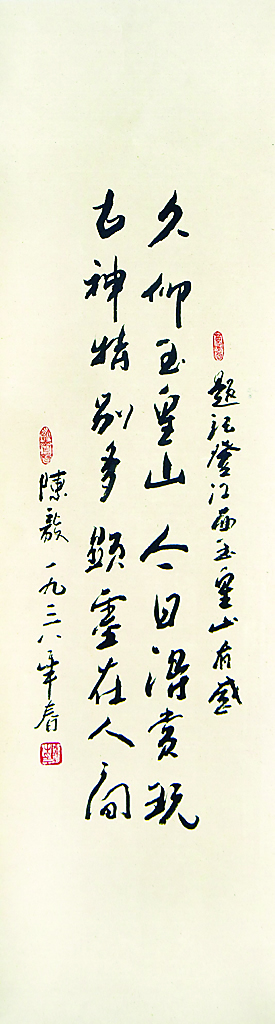 题记登江西玉皇山有感
久仰玉皇山今日得赏玩
古神特别多显灵在人间
陈毅一九三八年春